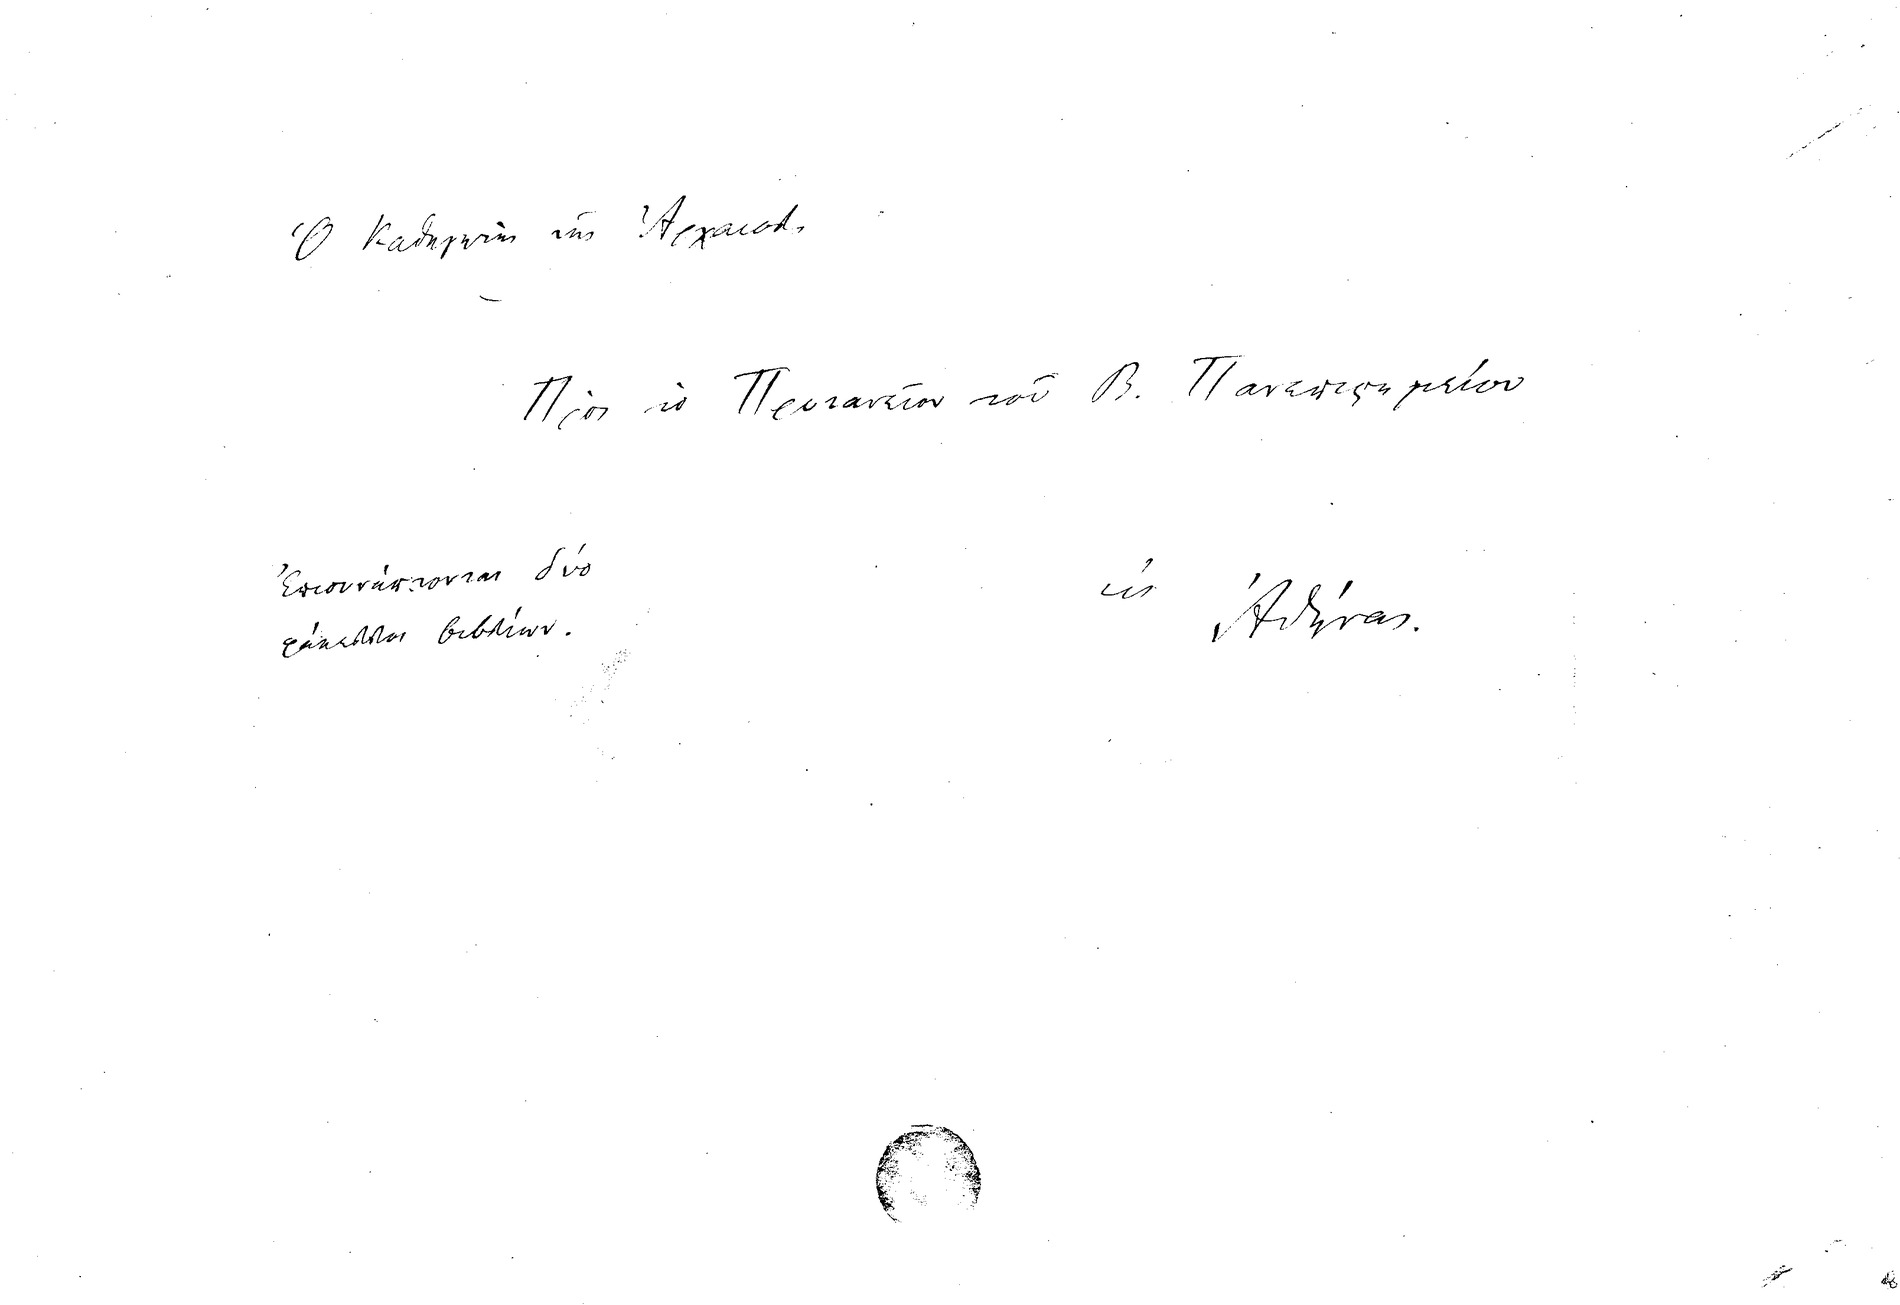 Ὁ Καθηγητὴς τῆς Ἀρχαιολ.
Πρὸς τὸ Πρυτανεῖον τοῦ Β. Πανεπιστημείου
Ἐπισυνάπτονται δύο
φάκελλοι βιβλίων.
εἰς Ἀθήνας.